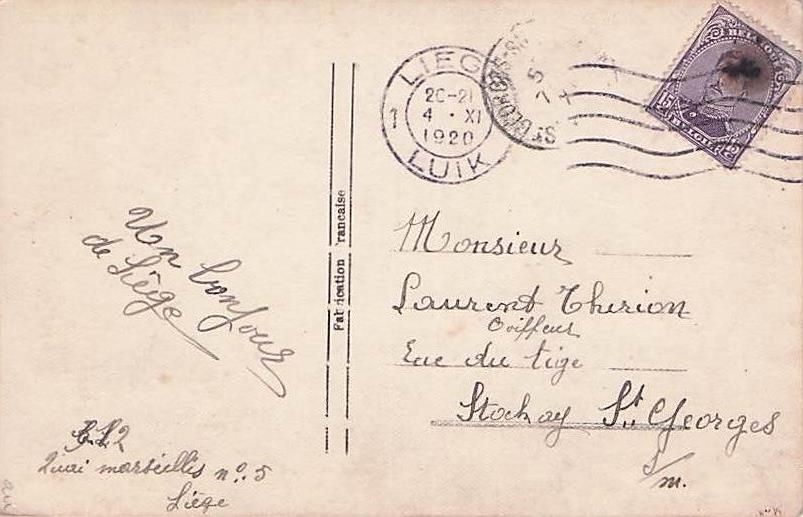 Un bonjour
de Liège
Quai marseillis n°. 5
Liège
Fabrication Francaise
LIEGE
1
20-21
4 · XI
1920
LUIK
ST GEORGES-S
BELGIQUE
15 15
BELGIË
Monsieur
Laurent Therion
Coiffeur
Rue du tige
Stockay St. Georges
s/m.